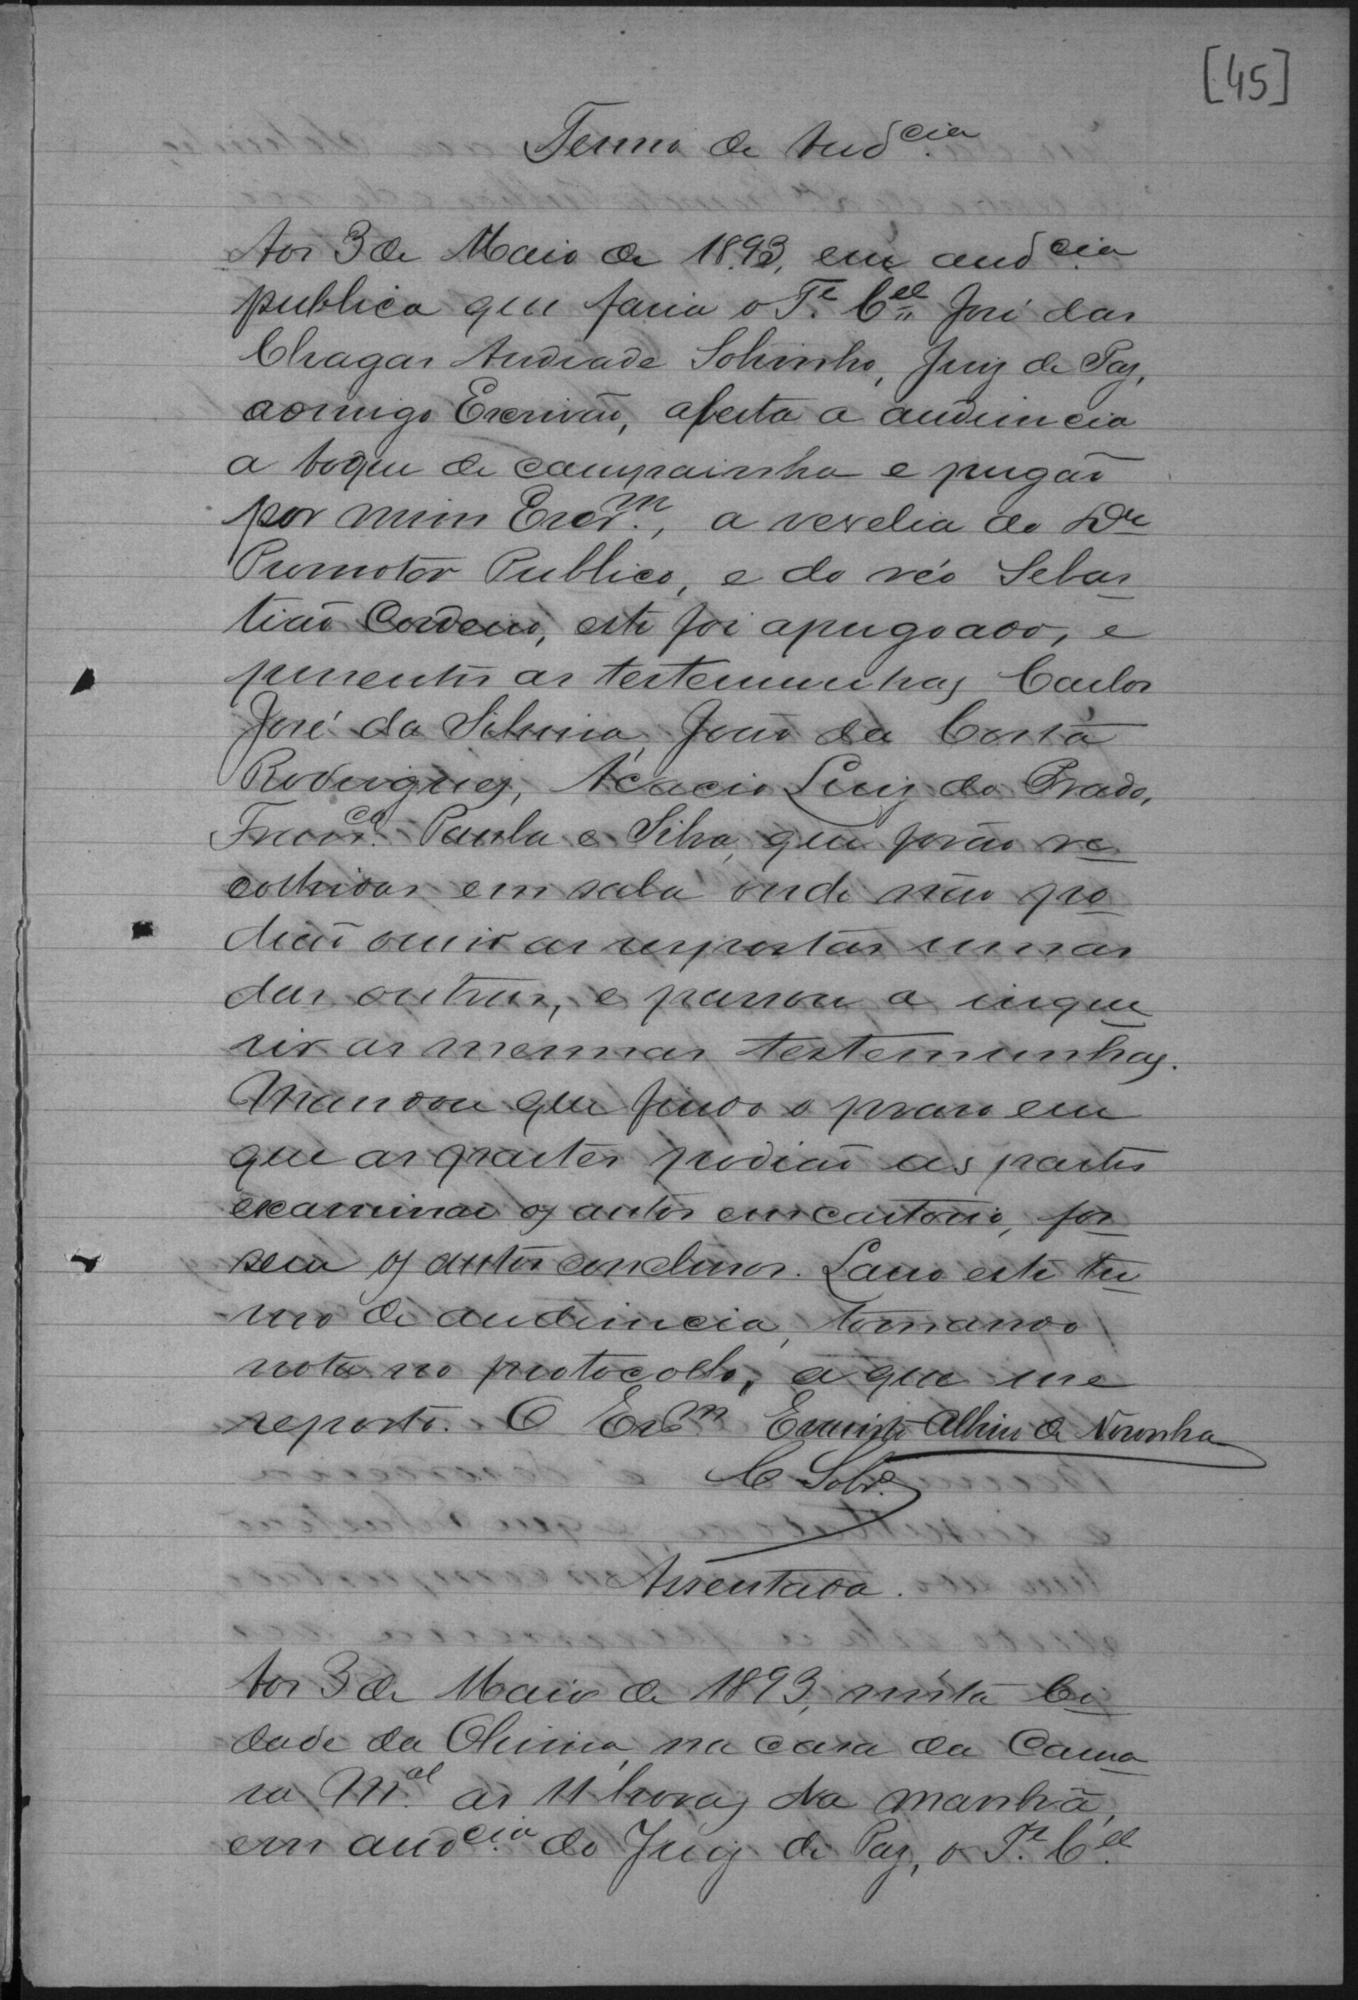 [45]
Termo de Aud.cia
Aos 3 de Maio de 1893, em aud.cia
publica que faria o T.e C.el José das
Chagas Andrade Sobrinho, Juiz de Paz,
comigo Escrivão, aberta a audiencia
a toque de campainha e pregão
por mim Escr.m, a revelia do Dr
Promotor Publico, e do réo Sebas
tião Cordeiro, este foi apregoado, e
presentes as testemunhas Carlos
José da Silveira, João da Costa
Rodrigues, Acacio Luiz do Prado,
Franc.co Paula e Silva, que forão re
colhidas em sala onde não po
dião ouvir as respostas umas
das outras, e passou a inque
rir as mesmas testemunhas.
Mandou que findo o praso em
que as partes podião as partes
examinar os autos em cartorio, fos
sem os autos conclusos. Lavro este ter
mo de audiencia, tomando
nota no protocollo, a que me
reporto. O Es.m Evaristo Albino de Noronha
C Sobr.o
Assentada.
Aos 3 de Maio de 1893, nesta Ci
dade da na casa da Cama
ra M.al as 11 horas da manhã,
em aud.cia do Juiz de Paz, o T.e C.el